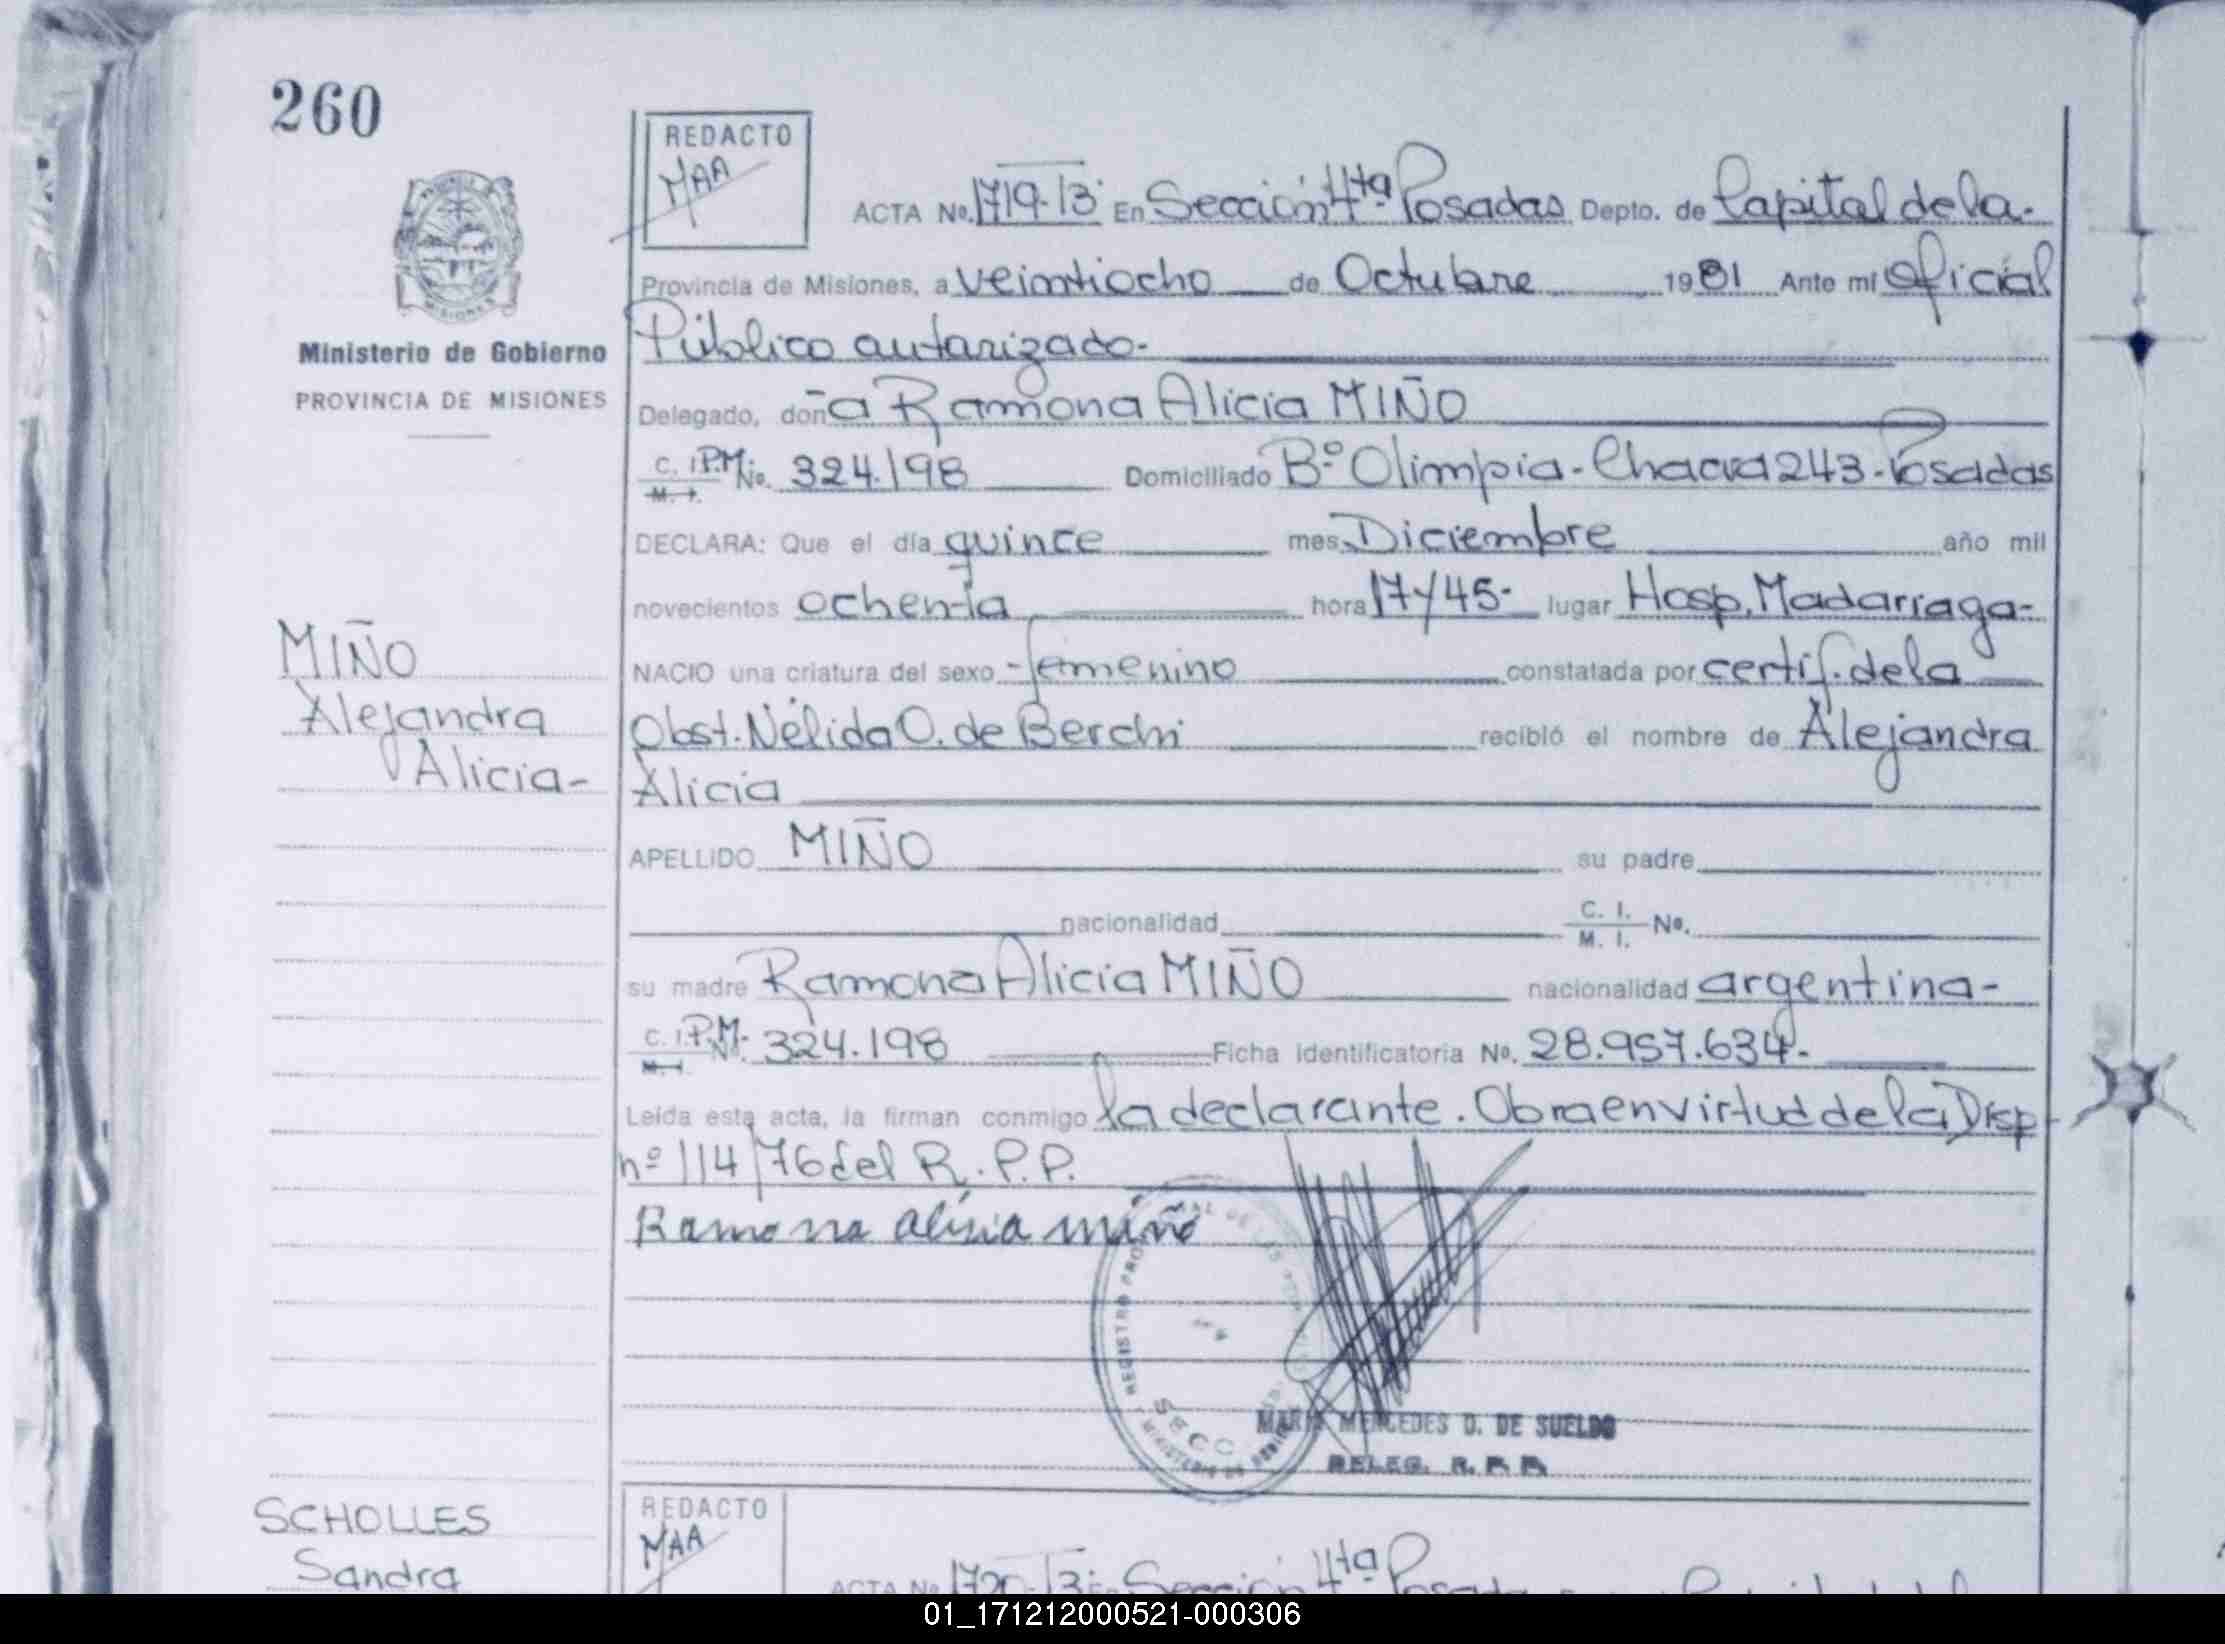 260
REDACTO
MAA
ACTA No. 1719-13- En Sección 4ta Posadas Depto. de Capital de la-
Provincia de Misiones, a veintiocho de Octubre 1981 Ante mí Oficial
Ministerio de Gobierno
Público autorizado-
PROVINCIA DE MISIONES
Delegado, doña Ramona Alicia MIÑO
C. I. P.M. No. 324.198 Domiciliado Bº Olimpia - Chacra 243 - Posadas
M. I.
DECLARA: Que el día quince mes Diciembre año mil
novecientos ochenta hora 17y45- lugar Hosp. Madarriaga-
MIÑO
NACIO una criatura del sexo - femenino constatada por certif. de la
Alejandra
Obst. Nélida O. de Berchi recibió el nombre de Alejandra
Alicia-
Alicia
APELLIDO MIÑO su padre
nacionalidad C. I. No.
M. I.
su madre Ramona Alicia MIÑO nacionalidad argentina-
C. I. P.M. No. 324.198 Ficha identificatoria No. 28.957.634-
M. I.
Leída esta acta, la firman conmigo la declarante. Obra en virtud de la Disp
nº 114/76 del R.P.P.
Ramona alisia miño
REGISTRO
SECC
MARIA MERCEDES D. DE SUELDO
DELEG. R. P. P.
SCHOLLES
Sandra
REDACTO
MAA
ACTA No 1720-13- En Sección 4ta Posadas
01_171212000521-000306